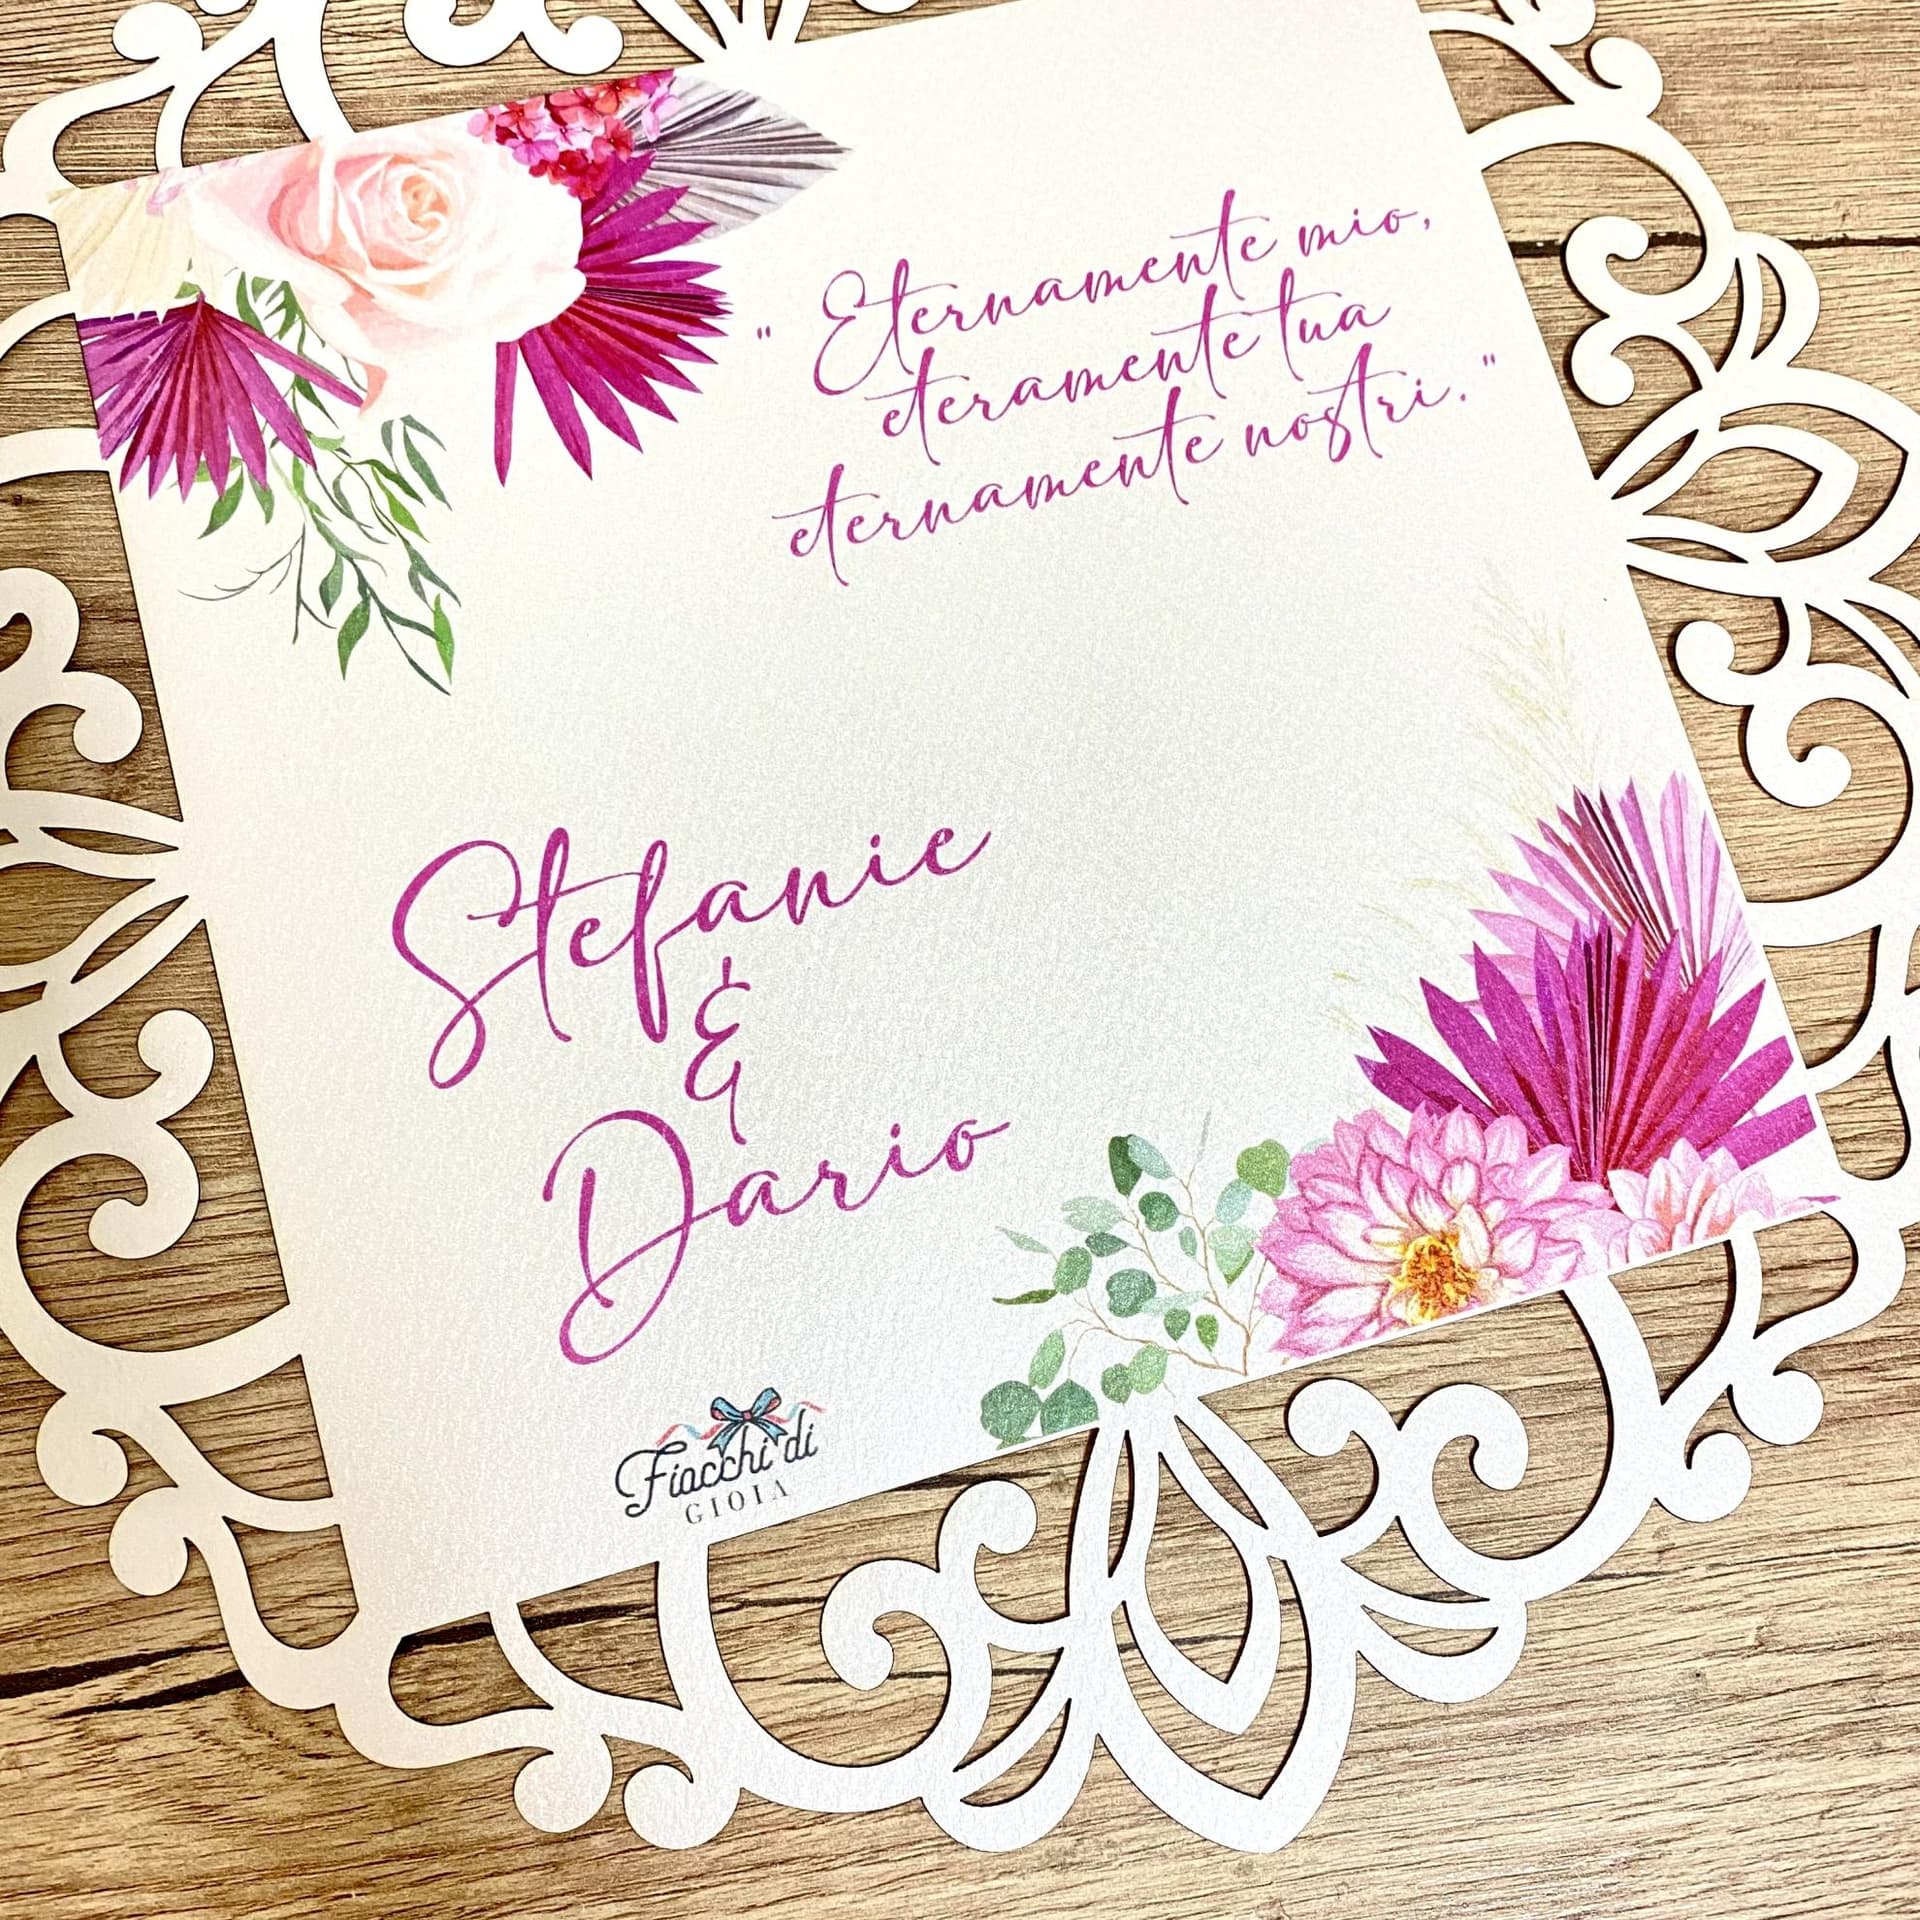 " Eternamente mio,
eteramente tua
eternamente nostri. "
Stefanie
&
Dario
Fiocchi di
GIOIA